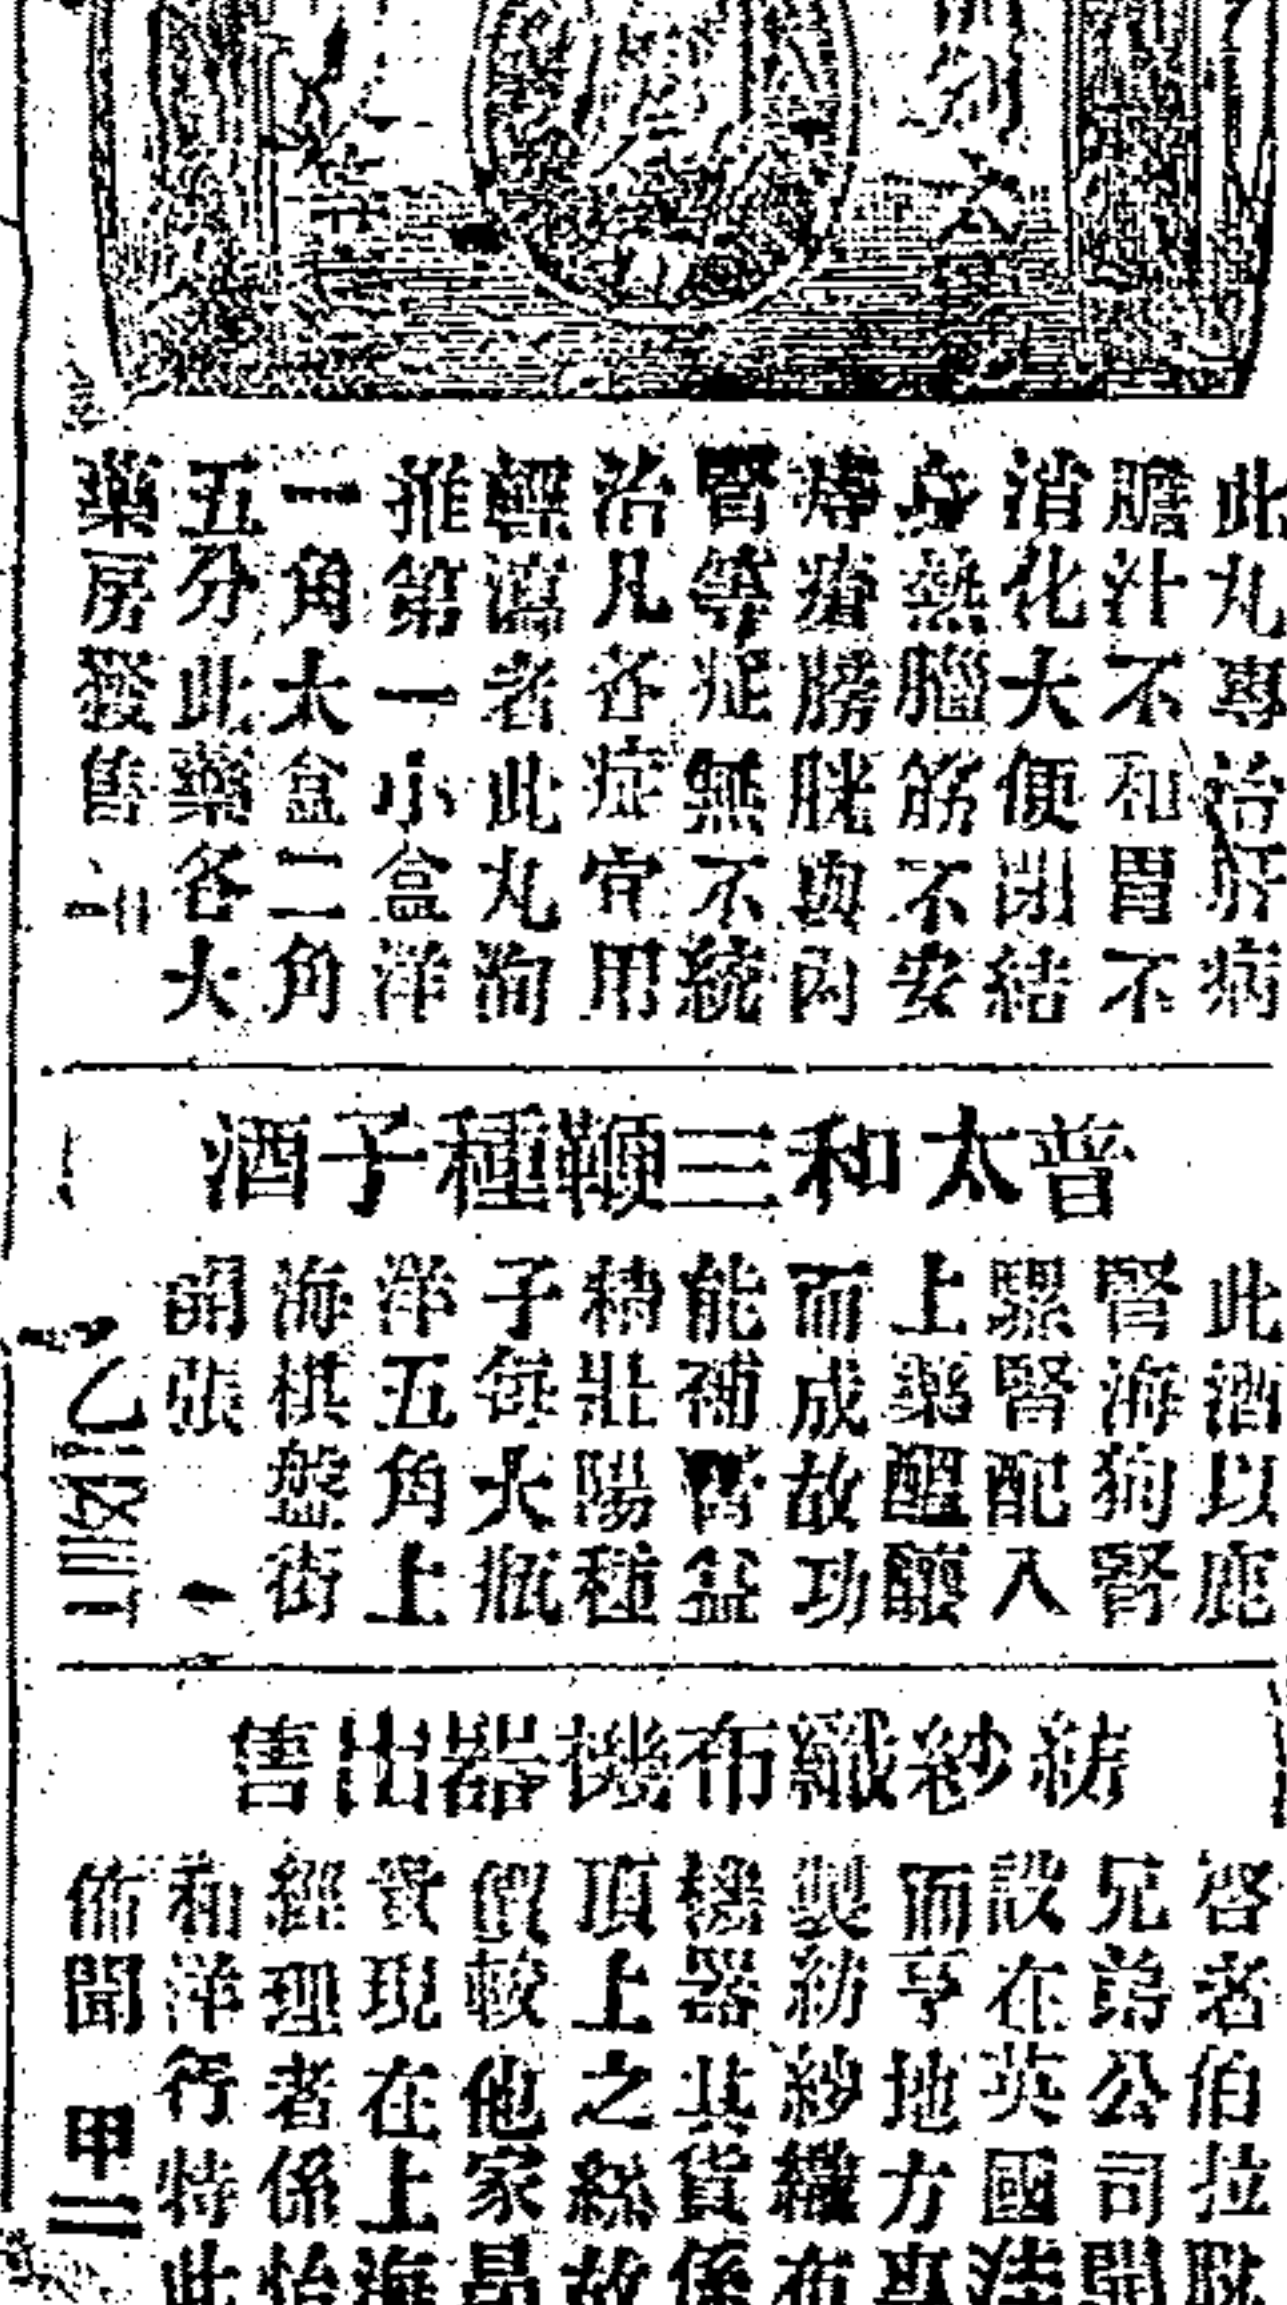 此丸專治肝病
膽汁不和胃不
消化大便閉結
身熱腦筋不安
痔瘡膀胱與內
腎等症無不統
治凡各症宜用
輕瀉者此丸洵
推第一小盒洋
一角大盒二角
五分此藥各大
藥房發售
普太和三鞭種子酒
此酒以鹿
腎海狗腎
驟腎配入
上藥醞釀
而成故功
能補腎益
精壯陽種
子每大瓶
洋五角上
海棋盤街
開張
一
乙
紡紗織布機器出售
啓者伯拉
兄弟公司開
設在英國
而亨地方專
製紡紗織布
機器其貨係
頂上之 故
價較他家昂
貴現在上海
經理者係怡
和洋行特此
佈聞 甲二